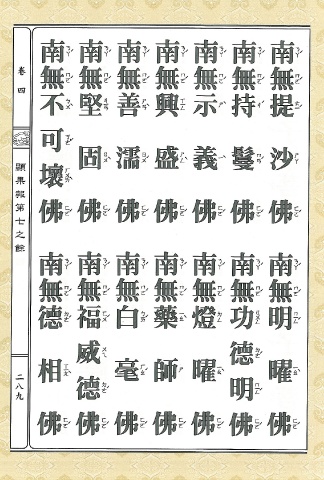 南無提沙佛 南無明曜佛
南無持鬘佛 南無功德明佛
南無示義佛 南無燈曜佛
南無興盛佛 南無藥師佛
南無善濡佛 南無白毫佛
南無堅固佛 南無福威德佛
南無不可壞佛 南無德相佛
卷四
顯果報第七之餘
二八九